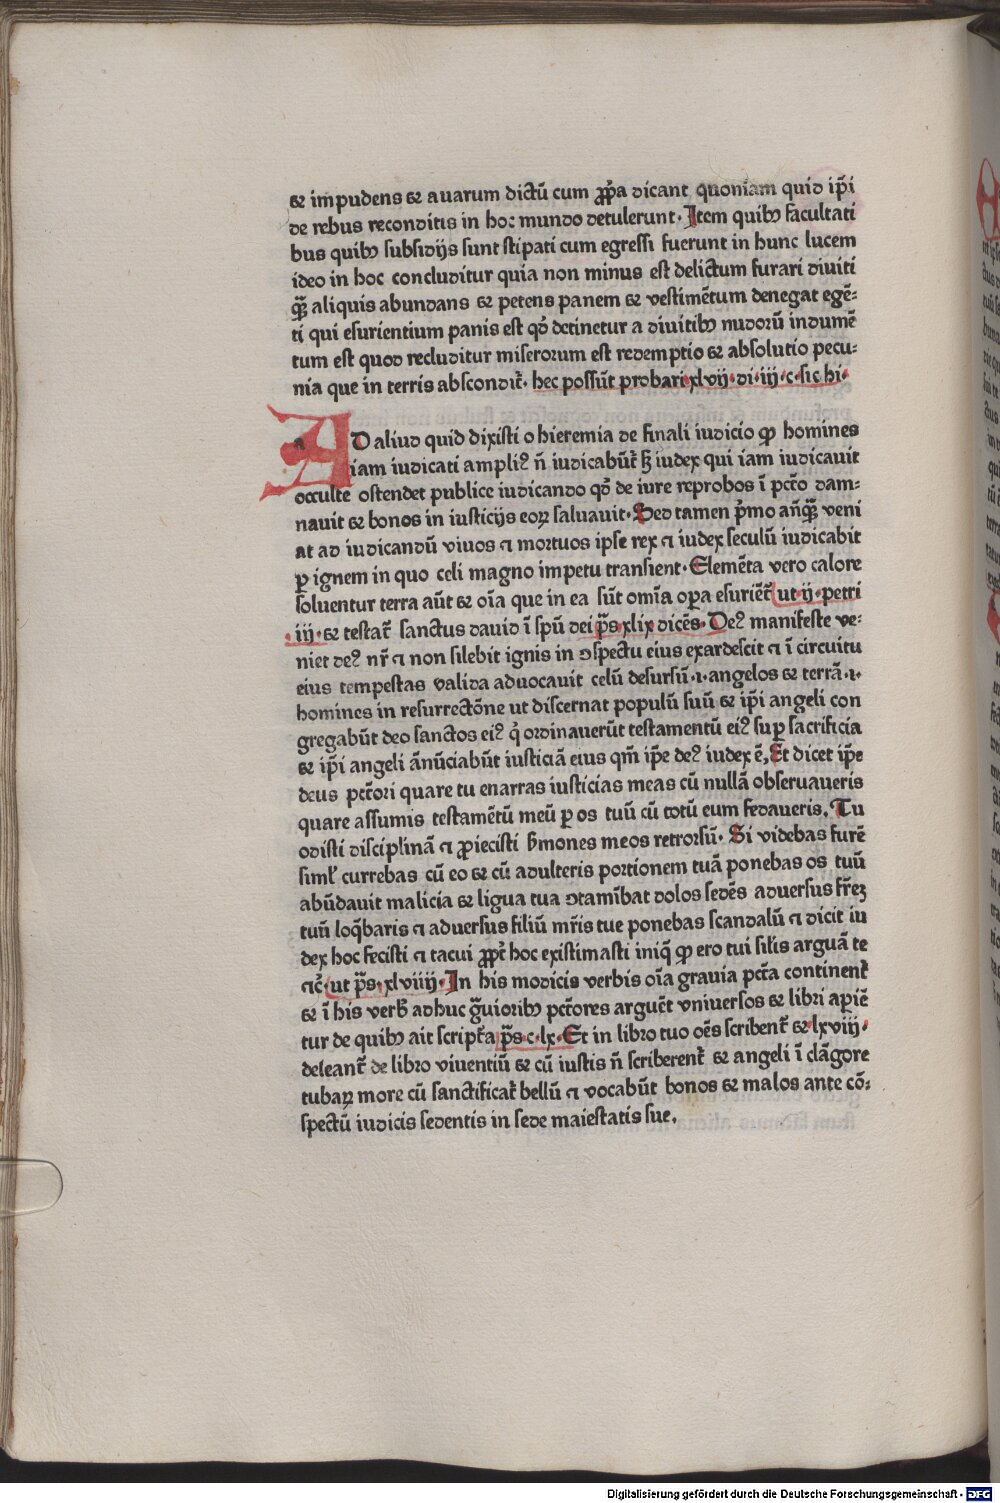 & impudens & auarum dictū cum ꝓp̄a dicant quoniam quid ip̄i
de rebus reconditis in hoc mundo detulerunt· Item quibꝫ facultati
bus quibꝫ subsidijs sunt stipati cum egressi fuerunt in hunc lucem
ideo in hoc concluditur quia non minus est delictum furari diuiti
qꝫ̄ aliquis abundans & petens panem & vestimētum denegat egē⸗
ti qui esurientium panis est qď detinetur a diuitibꝫ nudorū indumē
tum est quod recluditur miserorum est redemptio & absolutio pecu⸗
nia que in terris abscondit᷑· hec possūt probari xlvij·di·iij·c·sic hi·
AD aliud quid dixisti o hieremia de finali iudicio ꝙ homines
iam iudicati ampliꝰ n̄ iudicabūt᷑ hꝫ iudex qui iam iudicauit
occulte ostendet publice iudicando qď de iure reprobos ī pctō dam⸗
nauit & bonos in iusticijs eoꝝ saluauit· Sed tamen p̄mo añqꝫ̄ veni
at ad iudicandū viuos ⁊ mortuos ipse rex ⁊ iudex seculū iudicabit
ꝑ ignem in quo celi magno impetu transient· Elemēta vero calore
soluentur terra aūt & oīa que in ea sūt omīa oꝑa esuriēt᷑ ut ij·petri
iij·& testat᷑ sanctus dauid ī spū dei p̄s xlix dicēs· Deꝰ manifeste ve⸗
niet deꝰ nr̄ ⁊ non silebit ignis in ↄspectu eius exardescit ⁊ ī circuitu
eius tempestas valida aduocauit celū desursū·ı·angelos & terrā·ı·
homines in resurrectōne ut discernat populū suū & ip̄i angeli con
gregabūt deo sanctos eiꝰ q̇ ordinauerūt testamentū eiꝰ suꝑ sacrificia
& ip̄i angeli ānūciabūt iusticiā eius qm̄ ip̄e deꝰ iudex ē, Et dicet ip̄e
deus pctōri quare tu enarras iusticias meas cū nullā obseruaueris
quare assumis testamētū meū ꝑ os tuū cū totū eum fedaueris, Tu
odisti disciplinā ⁊ ꝓiecisti ẜmones meos retrorsū· Si videbas furē
siml̄ currebas cū eo & cū adulteris portionem tuā ponebas os tuū
abūdauit malicia & ligua tua ↄtamībat dolos sedēs aduersus fr̄eꝫ
tuū loq̄baris ⁊ aduersus filiū mr̄is tue ponebas scandalū ⁊ dicit iu
dex hoc fecisti ⁊ tacui ꝓpt᷑ hoc existimasti iniq̄ ꝙ ero tui silīs arguā te
⁊c̄·ut p̄s·xlviiij·In his modicis verbis oīa grauia pctā continent᷑
& ī his verb̄ adhuc ḡuioribꝫ pctōres arguēt vniuersos & libri apīē
tur de quibꝫ ait script᷑a p̄s·c·lx·Et in libro tuo oēs scribent᷑ & lxviij·
deleant᷑ de libro viuentiū & cū iustis n̄ scriberent᷑ & angeli ī clāgore
tubaꝝ more cū sanctificat᷑ bellū ⁊ vocabūt bonos & malos ante cō⸗
spectū iudicis sedentis in sede maiestatis sue,
Digitalisierung gefördert durch die Deutsche Forschungsgemeinschaft - DFG